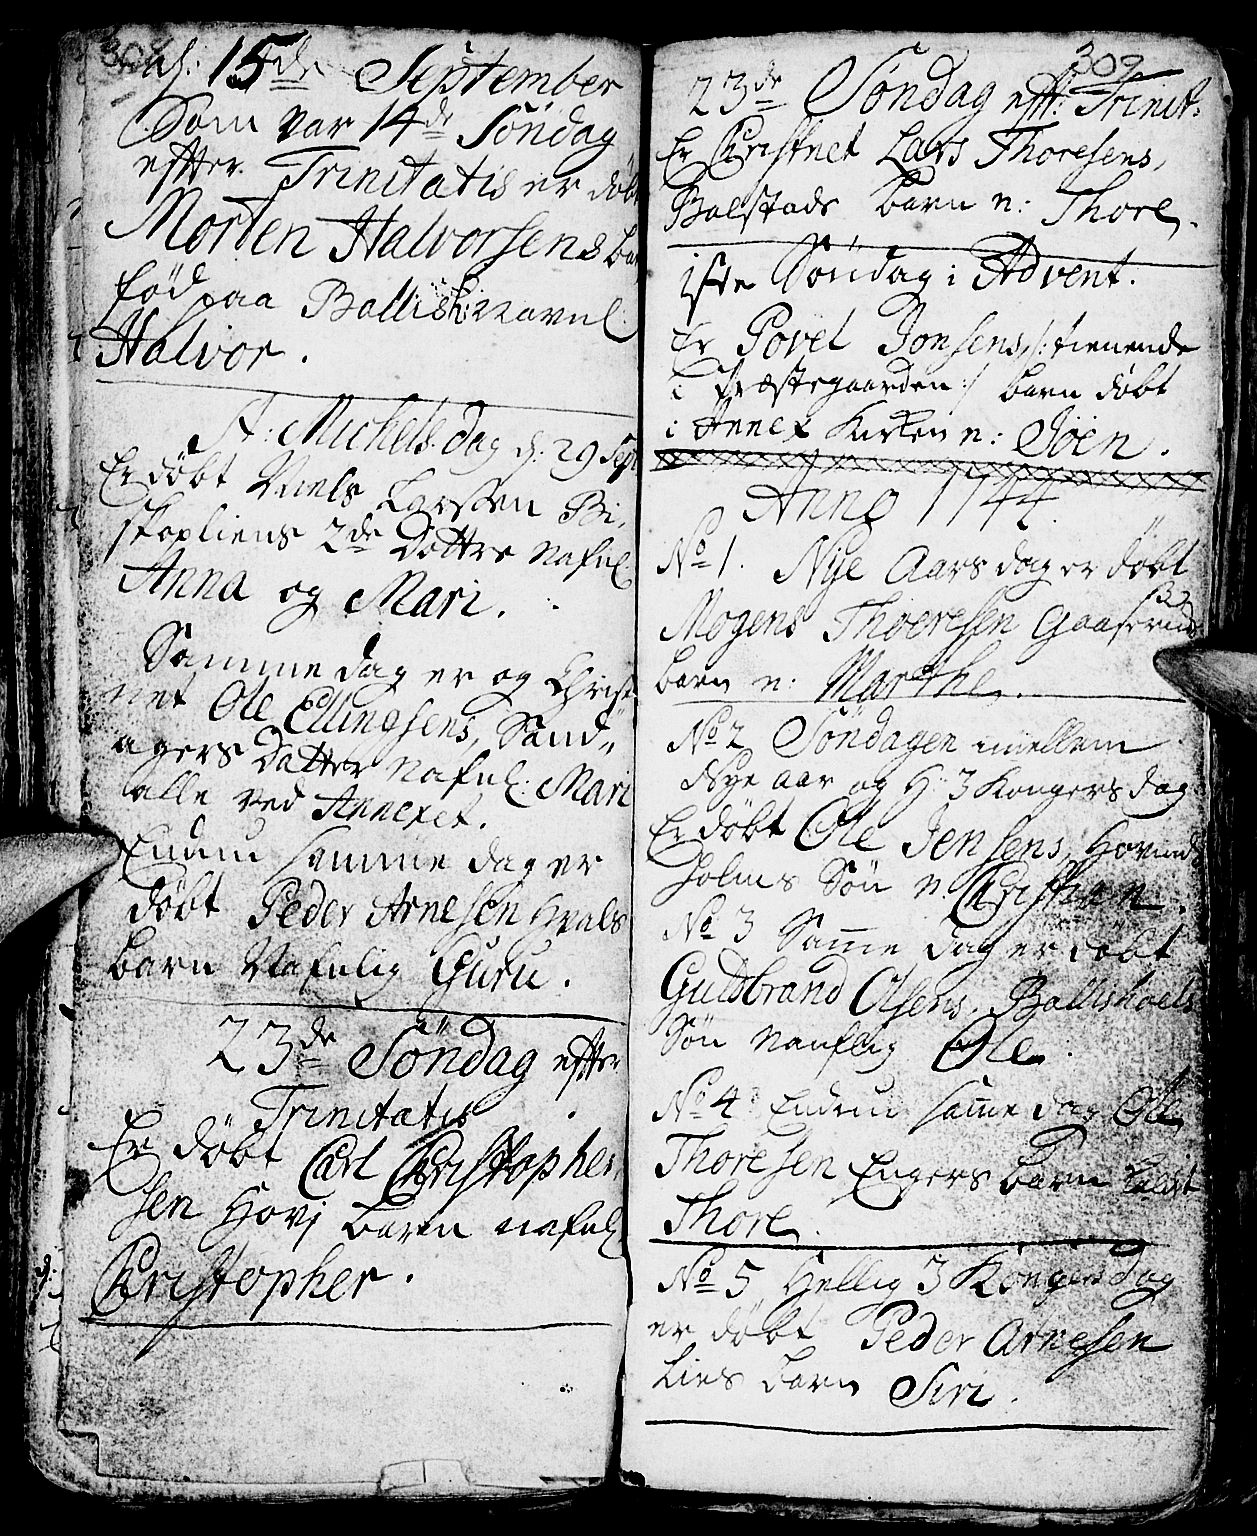 308
d: 15de September
Som var 14de Söndag
effter Trinitatis er döbt
Morten Halvorsens barn
föd paa Ballish: navnl:
Halvor.
St: Michels dag d: 29 Sept
Er döbt Niels Larssen Bi-
skopliens 2de Döttre nafnl
Anna og Mari.
Samme dag er og Christ-
net Ole Ellingsens, Sand-
agers Datter nafnl: Mari
alle ved Annexet.
Endnu samme dag er
döbt Peder Arnesen Hvals
barn Nafnlig Guru.
23de Söndag effter
Trinitatis
Er döbt Carl Christopher-
sen Hovj barn nafnl
Christopher.
309
23de Söndag efft: Trinit:
Er Christnet Lars Thoresens,
Balstads barn n: Thore.
1ste Söndag i Advent.
Er Povel Jonsens, /: tienende
i Præstegaarden :/ barn döbt
i Annex Kirken n: Joen.
Anno 1744.
No 1. Nye Aars dag er döbt
Mogens Thoeresen Gaaserud
barn n: Marthe.
No 2 Söndagen imellem
Nye aar og H: 3 Kongers dag
Er döbt Ole Jensens, Hovind-
holms Sön n: Christian.
No 3 Samme dag er döbt
Guldbrand Olsens, Ballishoels
Sön navnlig Ole.
No 4: Endnu samme dag Ole
Thoresen Engers barn kaldt
Thore.
No 5 Hellig 3 Kongers dag
er döbt Peder Arnesen
Lies barn Siri.